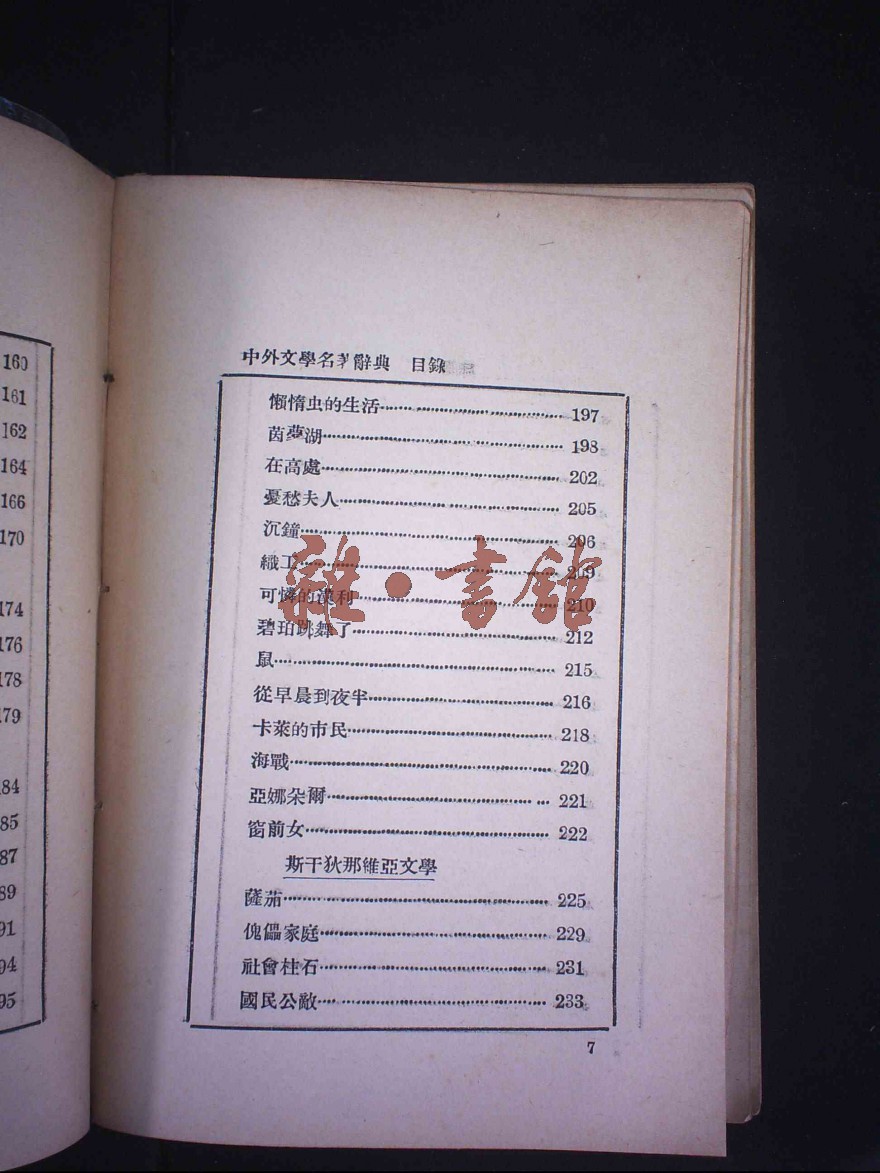 160
161
162
164
166
170
174
176
178
179
84
85
87
89
91
94
95
中外文學名著辭典 目錄
懶惰虫的生活 197
茵夢湖 198
在高處 202
憂愁夫人 205
沉鐘 206
織工 209
可憐的漢利 210
碧珀跳舞了 212
鼠 215
從早晨到夜半 216
卡萊的市民 218
海戰 220
亞娜朵爾 221
窗前女 222
斯干狄那維亞文學
薩茄 225
傀儡家庭 229
社會柱石 231
國民公敵 233
7
雜·書館